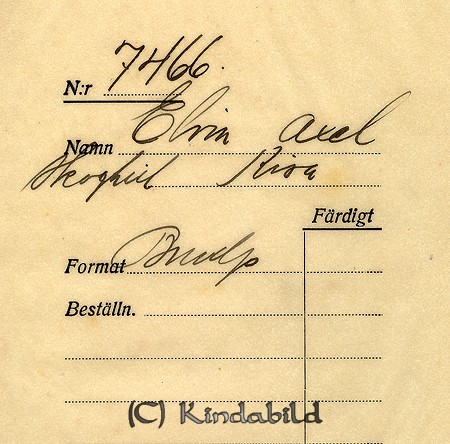 N:r 7466.
Namn Elvin Axel
Skoghill Kisa
Färdigt
Format
Beställn.
(C) Kindabild